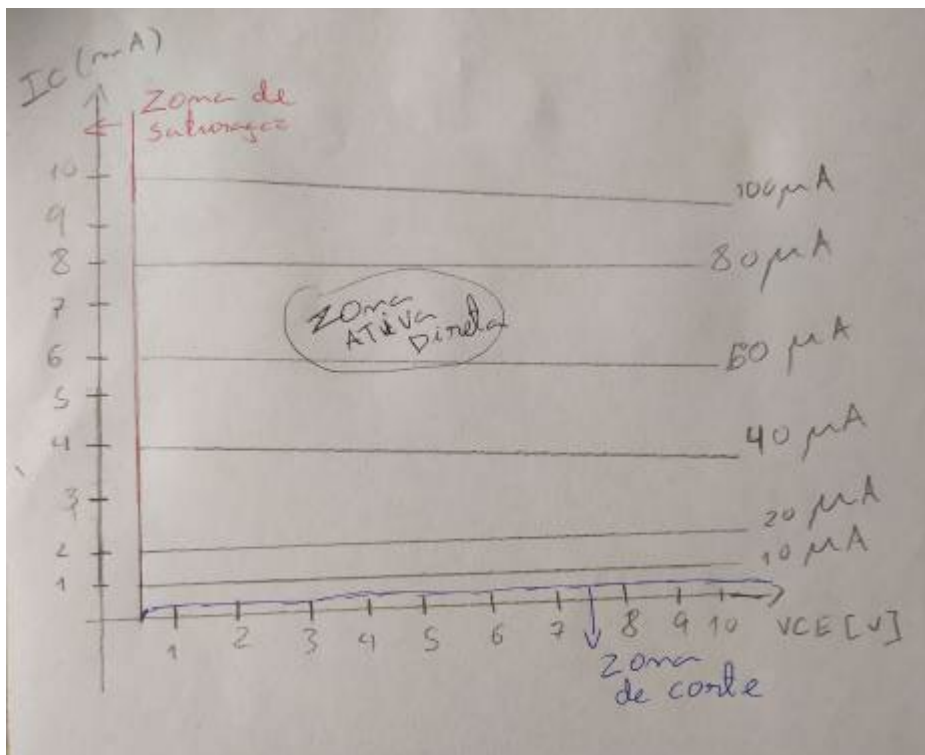 IC (mA)
Zona de
saturaçao
10
9
8
7
6
5
4
3
2
1
100 μA
80 μA
60 μA
40 μA
20 μA
10 μA
Zona
ATiva
Direta
1 2 3 4 5 6 7 8 9 10 VCE [V]
Zona
de corte